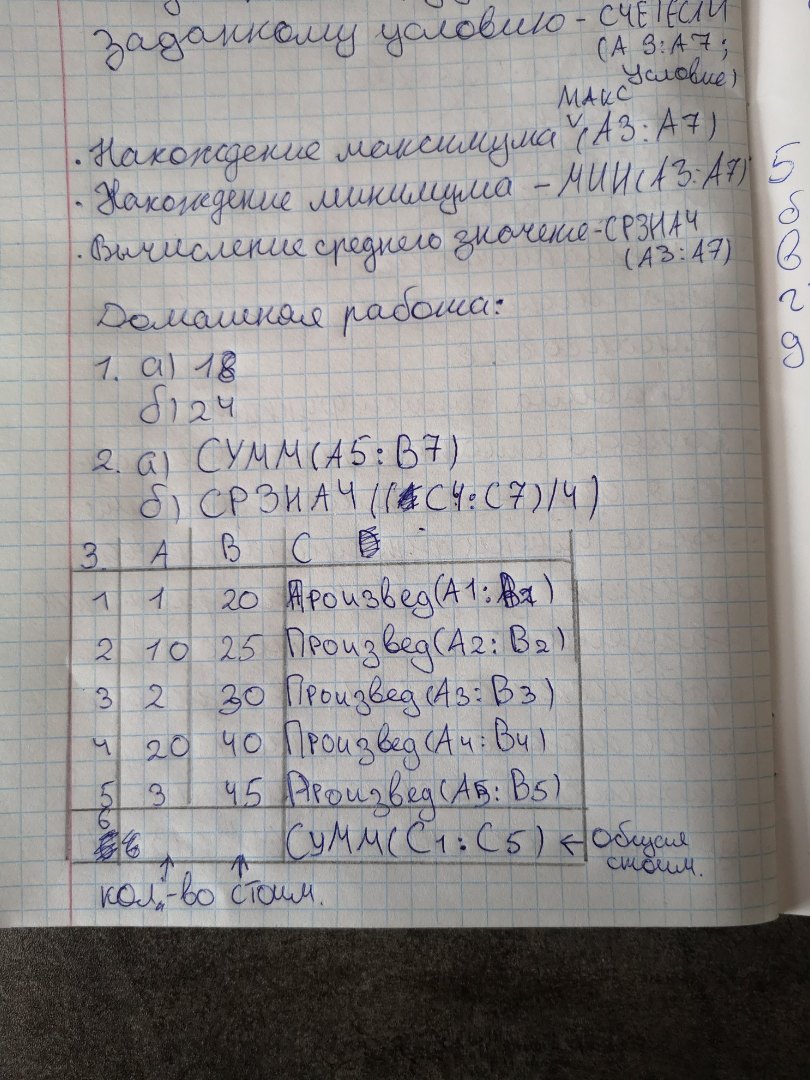 заданному условию - СЧЁТЕСЛИ
(А3:А7;
условие)
МАКС
. Нахождение максимума ˅(А3:А7)
. Нахождение минимума - МИН(А3:А7)
. Вычисление среднего значение-СРЗНАЧ
(А3:А7)
Домашная работа:
1. а) 18
б) 24
2. а) СУММ(А5:В7)
б) СРЗНАЧ((С4:С7)/4)
3 А В С
1 1 20 Произвед(А1:В1)
2 10 25 Произвед(А2:В2)
3 2 30 Произвед(А3:В3)
4 20 40 Произвед(А4:В4)
5 3 45 Произвед(А5:В5)
6
6 СУММ(С1:С5) ← Общая
стоим.
↑ ↑
кол.-во стоим.
5
б
в
г
д